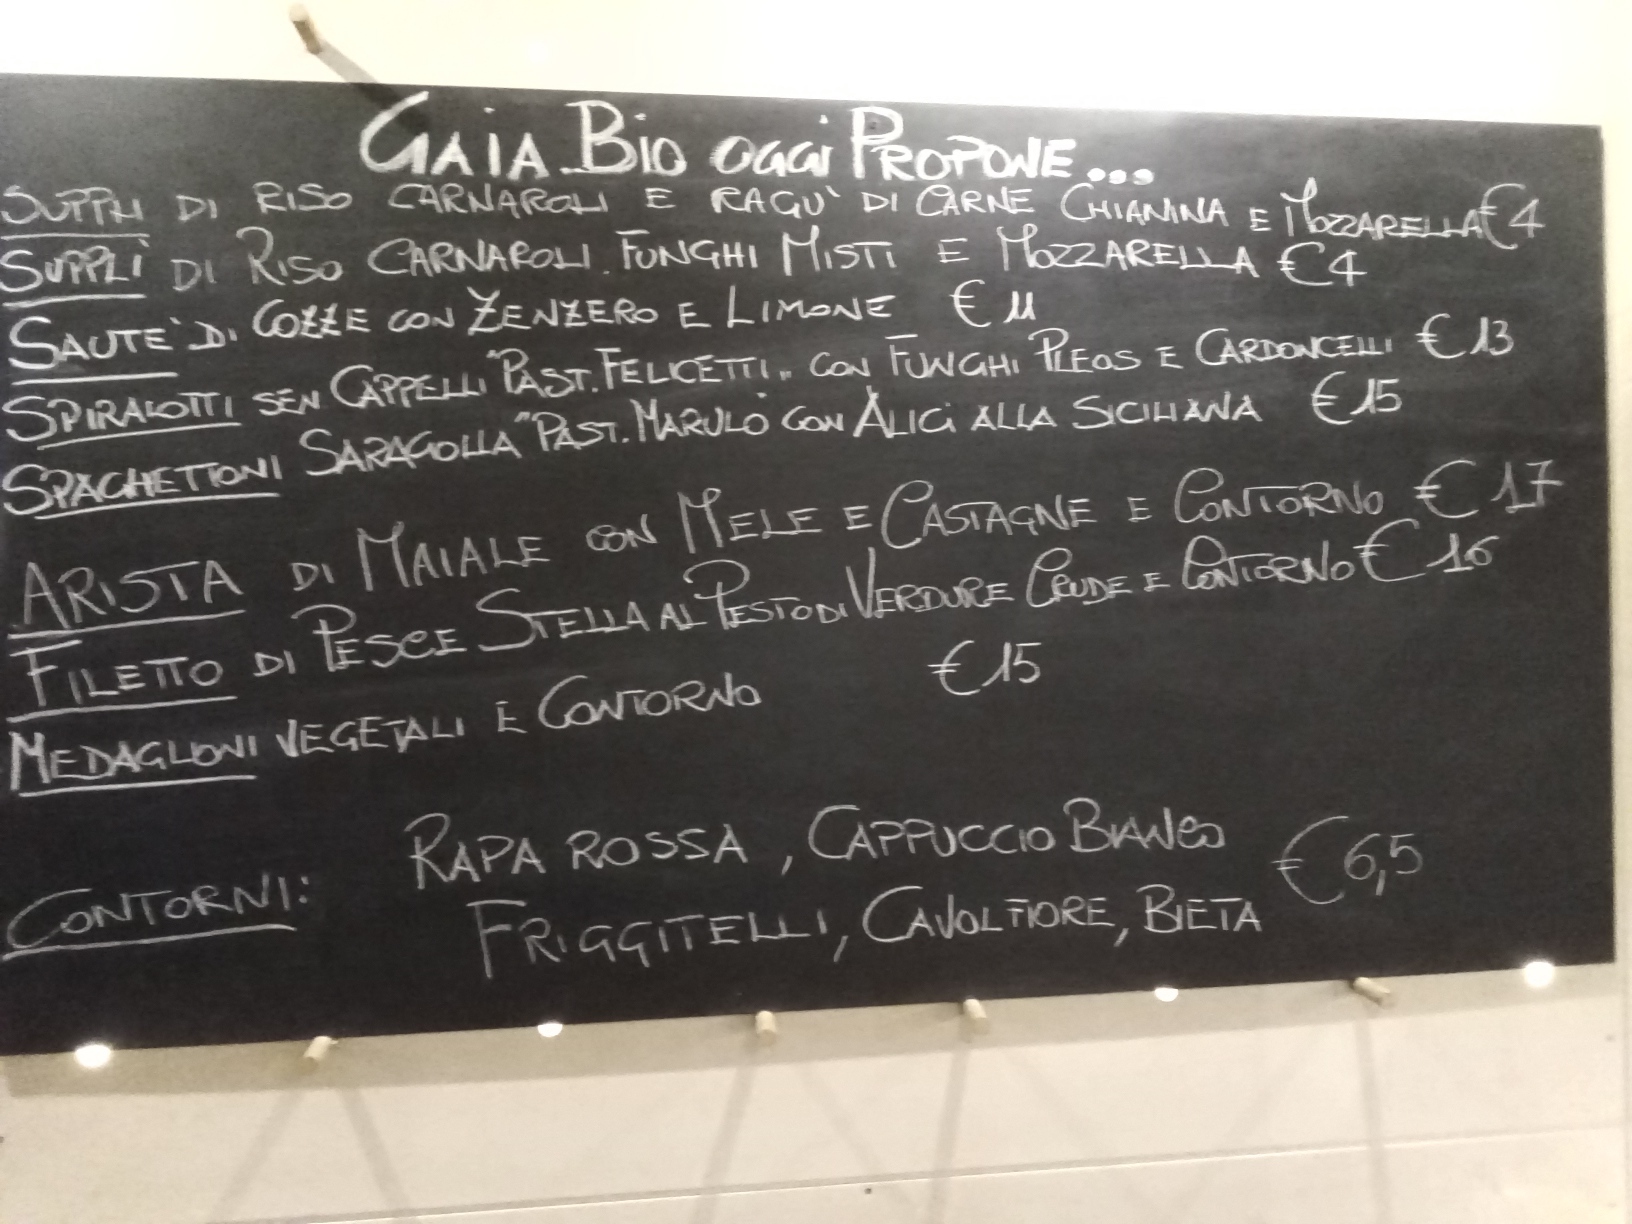 GAIA BIO OGGI PROPONE...
SUPPLI DI RISO CARNAROLI E RAGU' DI CARNE CHIANINA E MOZZARELLA €4
SUPPLÌ DI RISO CARNAROLI. FUNGHI MISTI E MOZZARELLA €4
SAUTE' DI COZZE CON ZENZERO E LIMONE € 11
SPIRALOTTI SEN. CAPPELLI "PAST. FELICETTI" CON FUNGHI PLEOS E CARDONCELLI € 13
SPAGHETTONI SARAGOLLA "PAST. MARULO CON ALICI ALLA SICILIANA €15
ARISTA DI MAIALE CON MELE E CASTAGNE E CONTORNO € 17
FILETTO DI PESCE STELLA AL PESTO DI VERDURE CRUDE E CONTORNO € 16
MEDAGLIONI VEGETALI E CONTORNO €15
RAPA ROSSA, CAPPUCCIO BIANCO
CONTORNI: € 6,5
FRIGGITELLI, CAVOLFIORE, BIETA